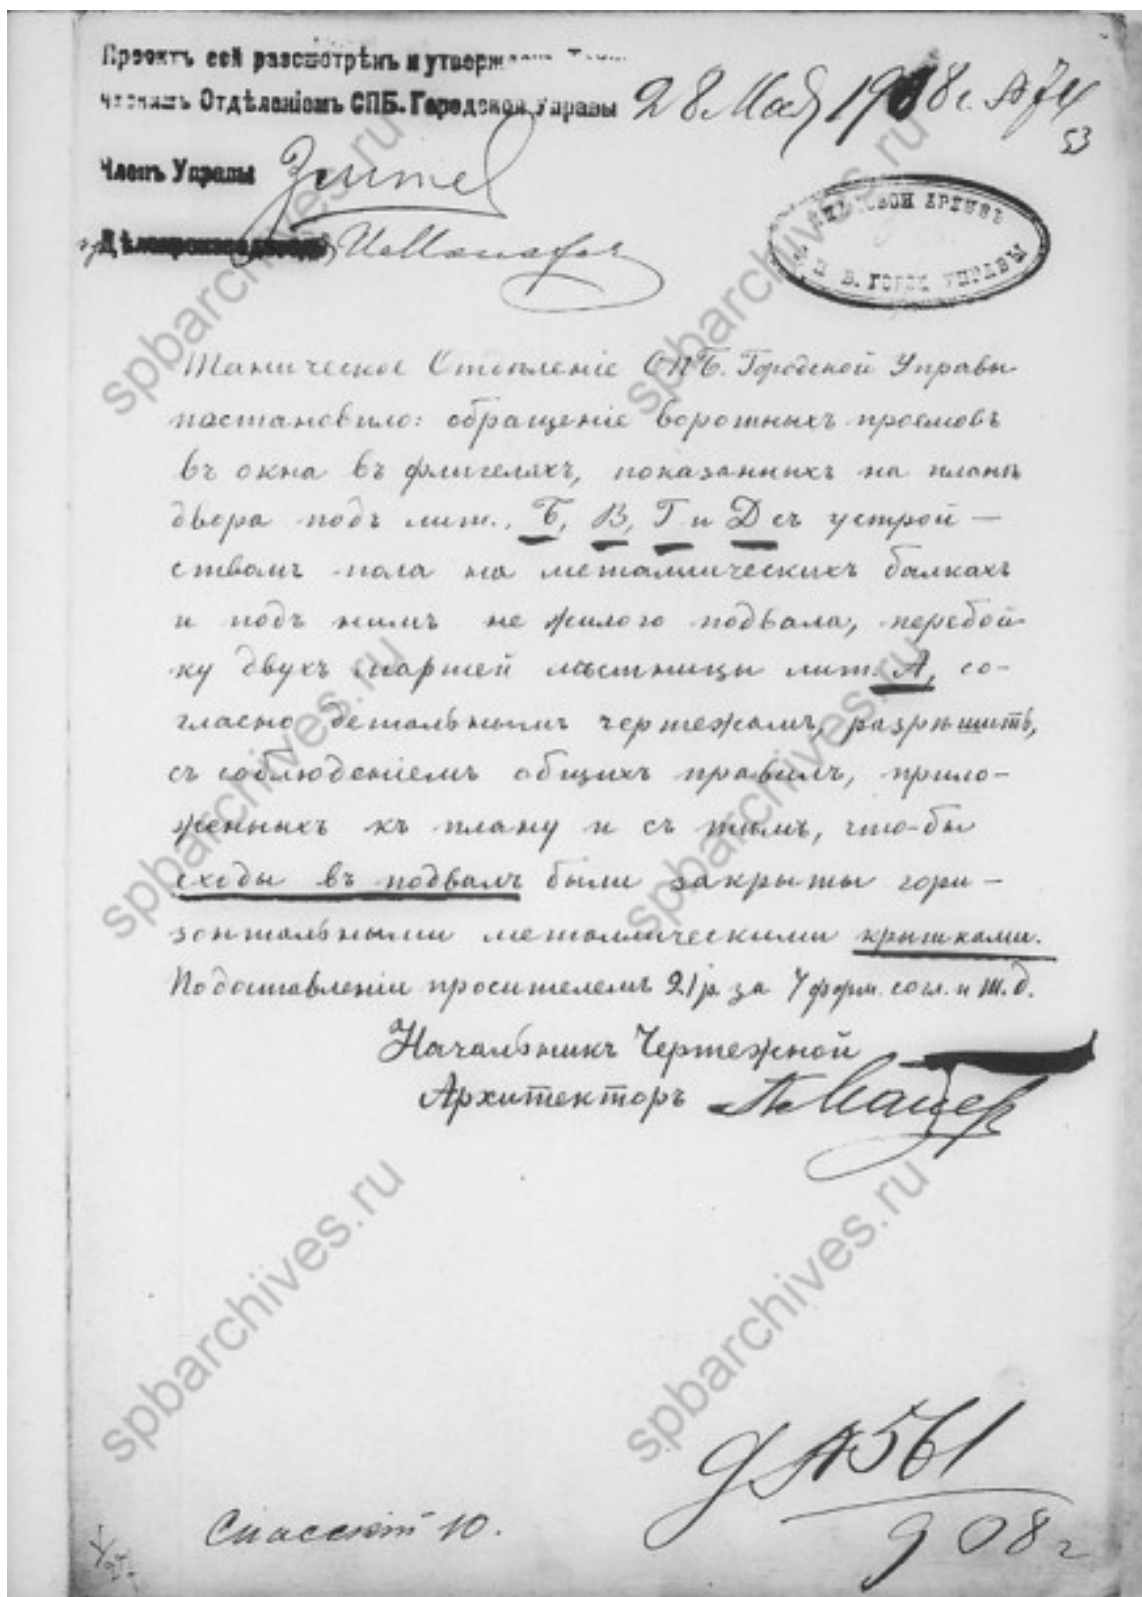 Проектъ сей разсмотрѣнъ и утверж
Отдѣленіемъ СПБ. Городской Управы 28 Мая 1908 г. № 74
53
Членъ Управы
АРХИВЪ
ГОРОД УПРАВЫ
Техническое Отдѣленіе СПБ. Городской Управы
постановило: обращеніе воротныхъ проемовъ
въ окна въ флигеляхъ, показанныхъ на планѣ
двора подъ лит. Б, В, Г и Д съ устрой-
ствомъ пола на металлическихъ балкахъ
и подъ нимъ не жилого подвала, перебой-
ку двухъ маршей лѣстницы лит. А, со-
гласно детальнымъ чертежамъ, разрѣшить,
съ соблюденіемъ общихъ правилъ, прило-
женныхъ къ плану и съ тѣмъ, что-бы
сходы въ подвалъ были закрыты гори-
зонтальными металлическими крышками.
По доставленіи просителемъ 21 р. за 7 форм. согл. и т. д.
Начальникъ Чертежной
Архитекторъ
№ 561
908 г
Спасской 10.
spbarchives.ru
spbarchives.ru
spbarchives.ru
spbarchives.ru
spbarchives.ru
spbarchives.ru